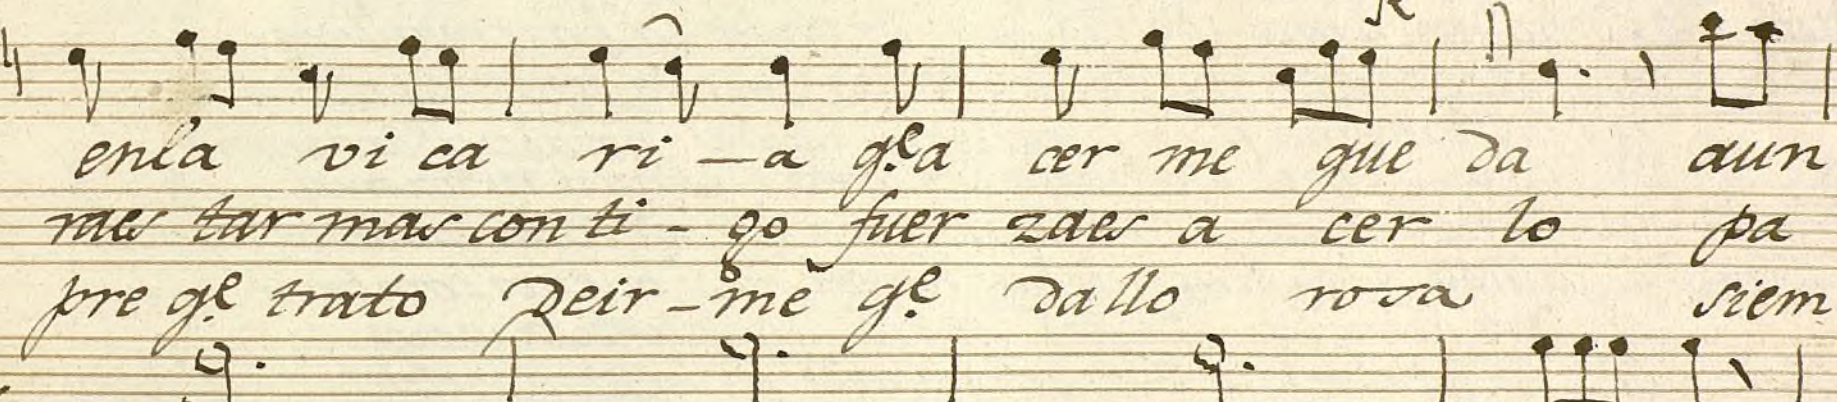 enla vi ca ri - a q.e a cer me que da aun
raes tar mas con ti - go fuer zaes a cer lo pa
pre q.e trato Deir - me q.e da llo rosa siem